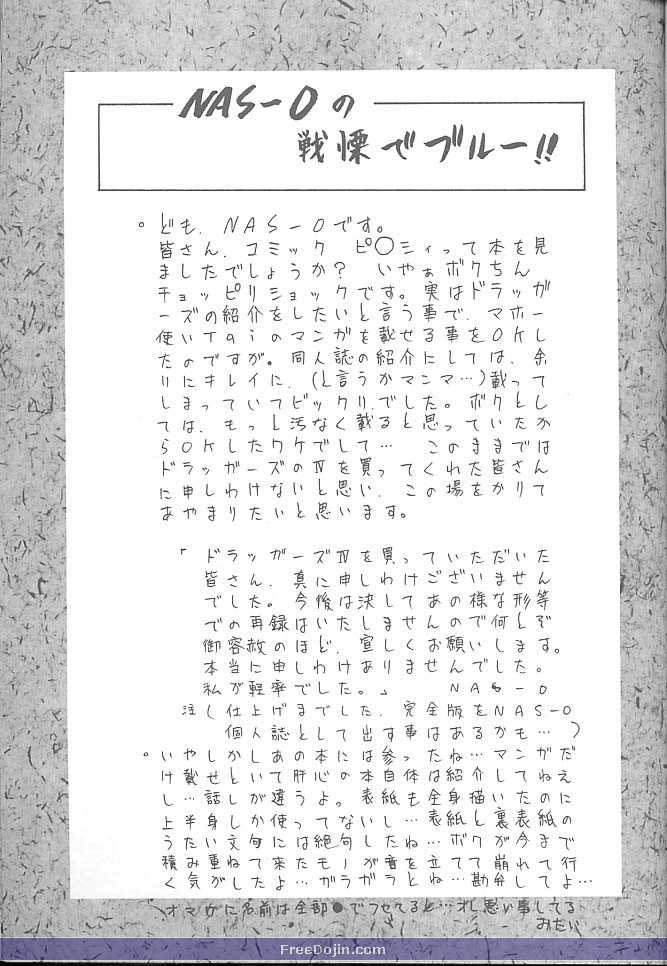 NAS-Oの
戦慄でブルー!!
。ども、NAS-Oです。
皆さん、コミック ピ〇シィって本を見
ましたでしょうか? いやぁボクちん
チョッピリショックです。実はドラッガ
ーズの紹介をしたいと言う事で、マホー
使いTaiのマンガを載せる事をOKし
たのですが。同人誌の紹介にしては、余
りにキレイに、(と言うかマンマ…)載って
しまっていてビックリ、でした。ボクとし
ては、もっと汚なく載ると思っていたか
らOKしたワケでして… このままでは
ドラッガーズのⅣを買ってくれた皆さん
に申しわけないと思い、この場をかりて
あやまりたいと思います。
「ドラッガーズⅣを買っていただいた
皆さん、真に申しわけございません
でした。今後は決してあの様な形等
での再録はいたしませんので何とぞ
御容赦のほど、宜しくお願いします。
本当に申しわけありませんでした。
私が軽率でした。」 NAS-O
注(仕上げまでした、完全版をNAS-O
個人誌として出す事はあるかも…)
。いやしかしあの本には参ったね…マンガだ
け載せといて肝心の本自体は紹介してねえ
し…話しが違うよ。表紙も全身描いたのに
上半身しか使ってないし…表紙と裏表紙の
うたい文句には絶句したね…ボクが今まで
積み重ねて来たモノが音を立てて崩れて行
く気がしたよ…ガラガラとね…勘弁してよ…
オマケに名前は全部●でフせてると…オレ悪い事してる
みたい
FreeDojin.com